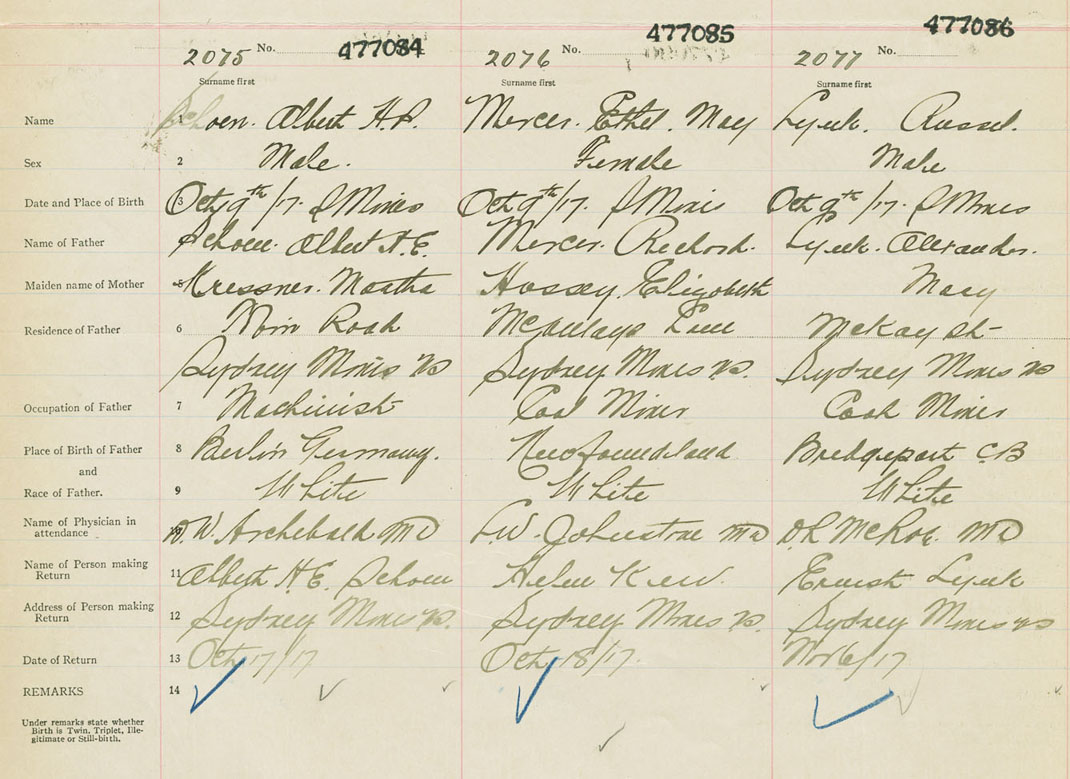 2075 No. 477084 2076 No. 477085 2077 No. 477086
Surname first Surname first Surname first
Name 1 Schoen. Albert H.P. Mercer. Ethel. May Lyuk. Russel.
Sex 2 Male. Female Male
Date and Place of Birth 3 Oct 9th/17. S Mines Oct 9th/17. S Mines Oct 9th/17. S Mines
Name of Father Schoen. Albert H.E. Mercer. Richard. Lyuk. Alexander.
Maiden name of Mother 5 Kressner. Martha Hussey, Elizabeth Mary
Residence of Father 6 Main Road McAulays Lane McKay St
Sydney Mines NS Sydney Mines NS. Sydney Mines NS
Occupation of Father 7 Machinist Coal Miner Coal Miner
Place of Birth of Father 8 Berlin Germany. Newfoundland Bridgeport C.B
and
Race of Father. 9 White White White
Name of Physician in
attendance 10 W. Archibald MD L.W. Johnstone MD D.R McRae. MD
Name of Person making
Return 11 Albert H.E. Schoen Helen Kew. Ernest Lyuk
Address of Person making
Return 12 Sydney Mines NS. Sydney Mines NS. Sydney Mines NS
Date of Return 13 Oct 17/17 Oct 18/17. Nov 6/17
REMARKS 14
Under remarks state whether
Birth is Twin, Triplet, Ille-
gitimate or Still-birth.